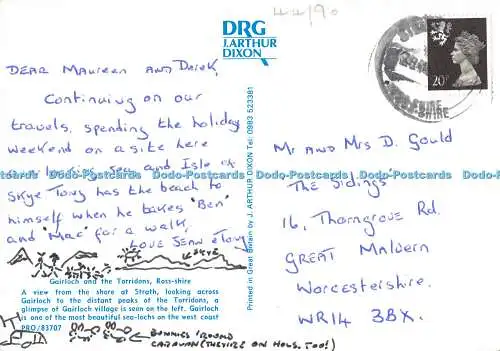 44/90
DRG
J.ARTHUR
DIXON
DEAR MAUREEN AND DEREK,
CONTINUING ON OUR
TRAVELS, SPENDING THE HOLIDAY
WEEKEND ON A SITE HERE
SKYE TONY HAS THE BEACH TO
HIMSELF WHEN HE TAKES 'BEN'
AND 'MAC' FOR A WALK,
LOVE JEAN & TONY
SKYE
Gairloch and the Torridons, Ross-shire
A view from the shore at Strath, looking across
Gairloch to the distant peaks of the Torridons, a
glimpse of Gairloch village is seen on the left. Gairloch
is one of the most beautiful sea-lochs on the west coast
PRO/83707
BUNNIES 'ROUND
CARAVAN (THEY'RE ON HOLS. TOO!)
Printed in Great Britain by J. ARTHUR DIXON Tel: 0983 523381
20P
SHIRE
Mr AND MRS D. GOULD
THE SIDINGS
16, THORNGROVE RD.
GREAT MALVERN
WORCESTERSHIRE.
WR14 3BX.
Dodo-Postcards Dodo-Postcards Dodo-Postcards Dodo-Postcards Dodo-Postcards